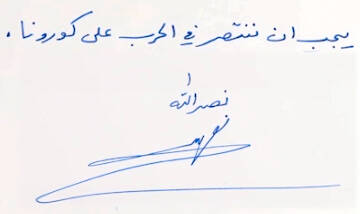 يجب ان ننتصر في الحرب على كورونا.
نصرالله